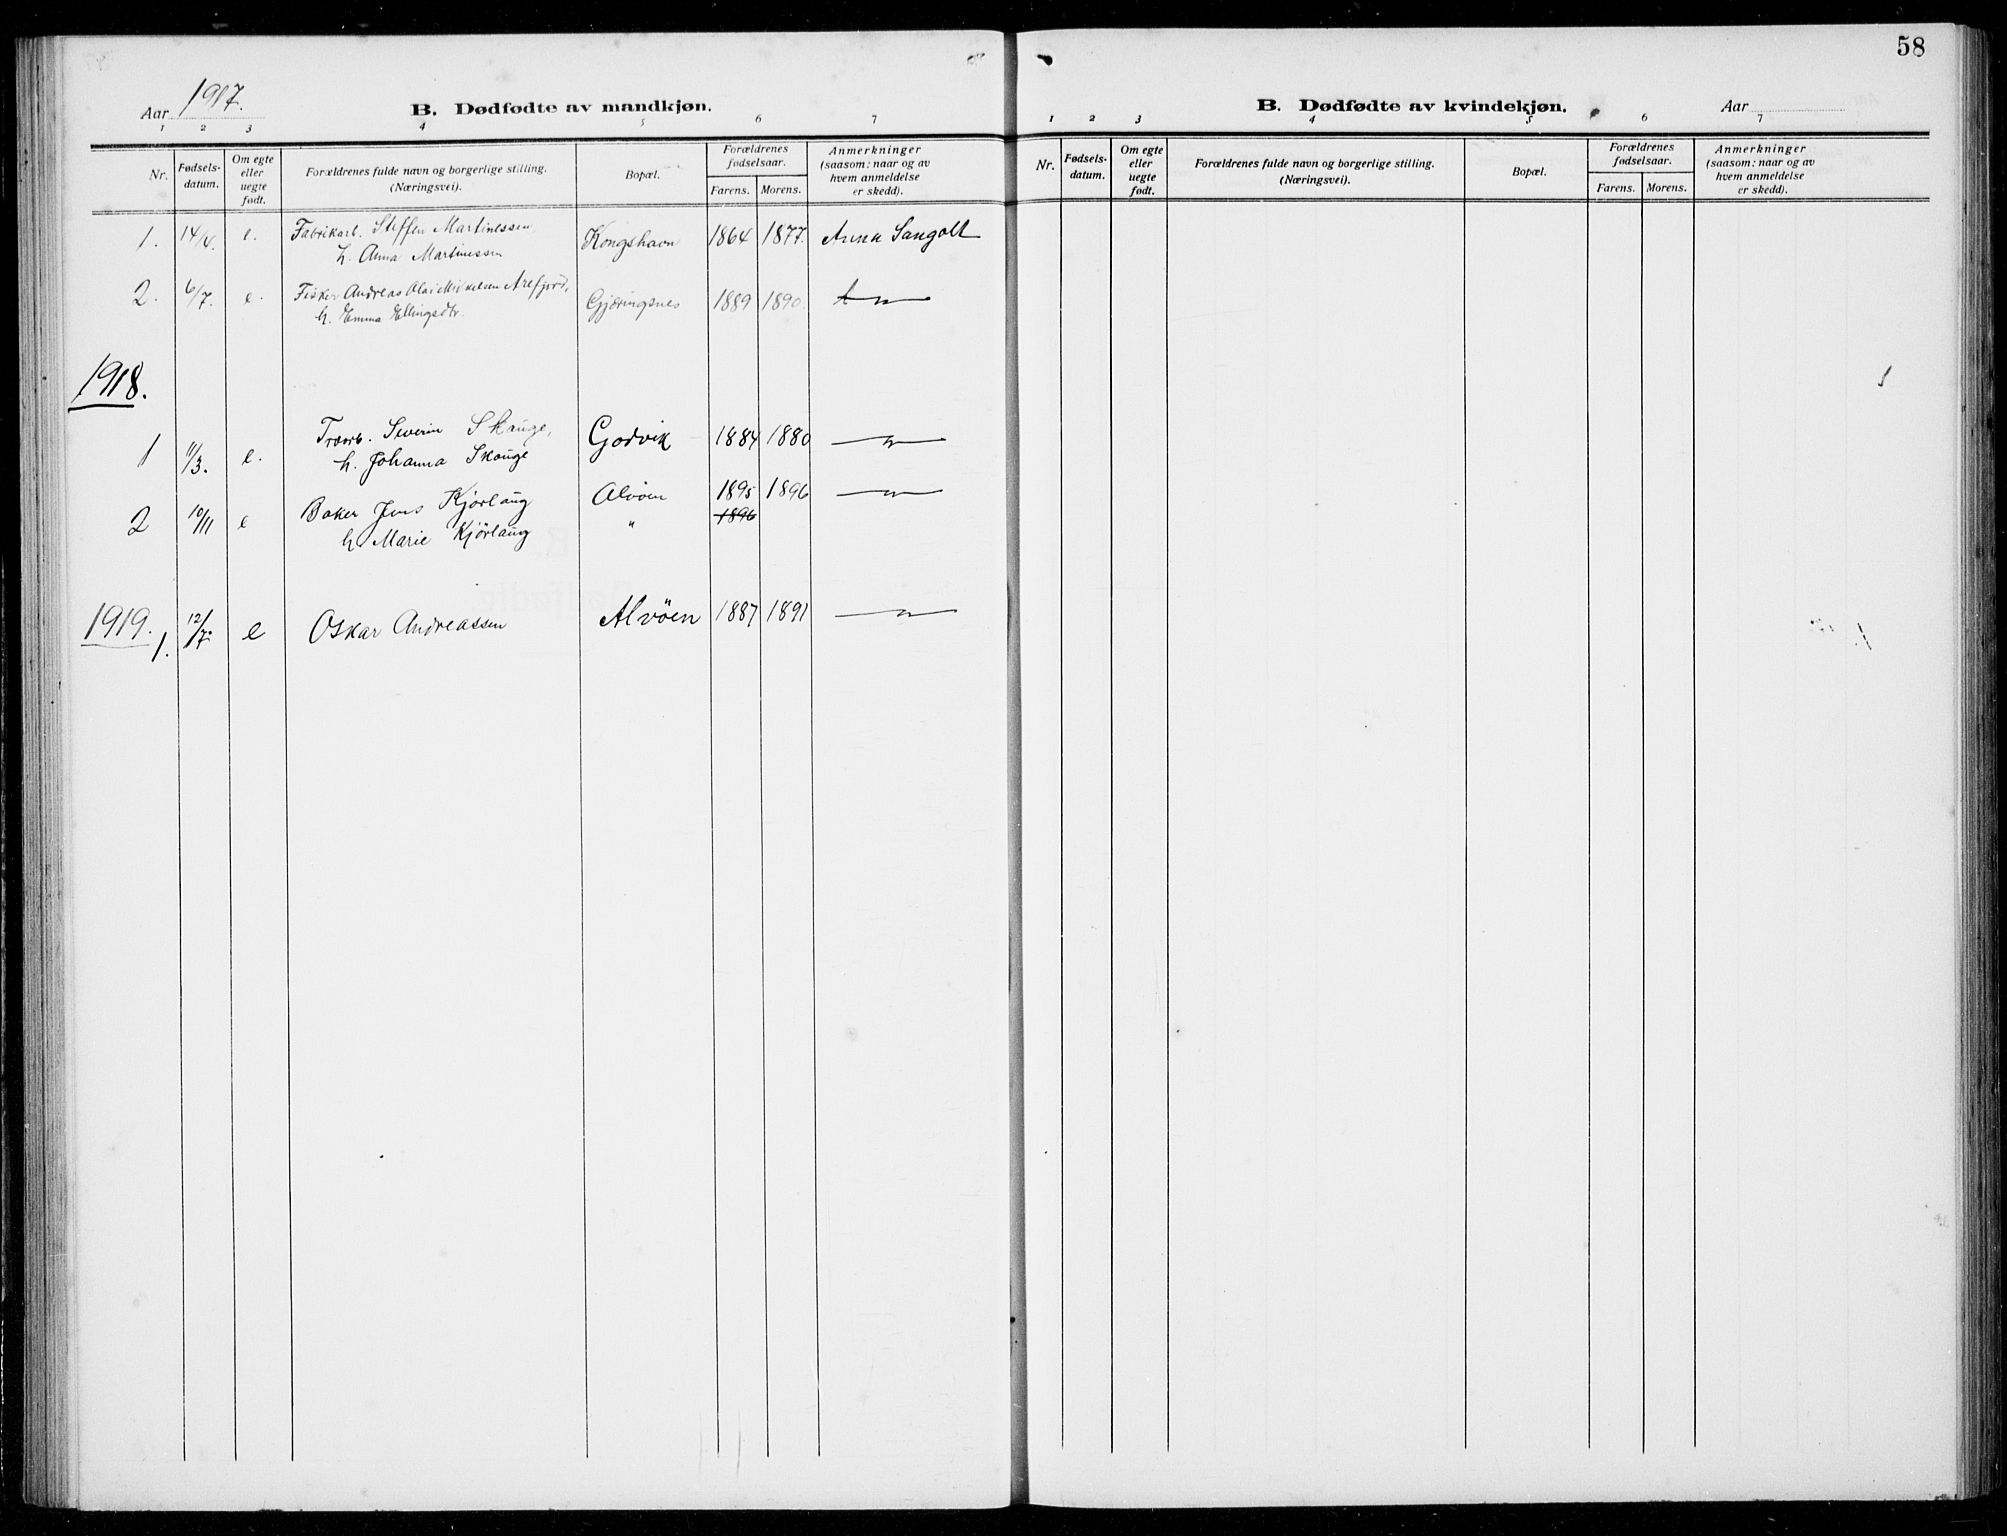 58
Aar 1917.
B. Dødfødte av mandkjøn.
1 2 3 4 5 6 7
Nr.
Fødsels-
datum.
Om egte
eller
uegte
født.
Forældrenes fulde navn og borgerlige stilling.
(Næringsvei).
Bopæl.
Forældrenes
fødselsaar.
Farens. Morens.
Anmerkninger
(saasom: naar og av
hvem anmeldelse
er skedd).
1. 14/4. e. Fabrikarb. Steffen Martinessen, Kongshavn 1864 1877. Anna Sangolt
h. Anna Martinessen
2. 6/7. e. Fisker Andreas Olai Mikkelsen Arefjord, Gjæringsnes 1889 1890.
h. Emma Ellingsdtr.
1918.
1 11/3. e. Træarb. Severin Skauge, Godvik 1884 1880 — " —
h. Johanna Skauge
2 10/11 e Baker Jens Kjörlaug Alvöen 1895 1896 — " —
h Marie Kjörlaug " 1896
1919. 1. 12/7. e Oskar Andreassen Alvöen 1887 1891 — " —
B. Dødfødte av kvindekjøn.
Aar
1 2 3 4 5 6 7
Nr.
Fødsels-
datum.
Om egte
eller
uegte
født.
Forældrenes fulde navn og borgerlige stilling.
(Næringsvei).
Bopæl.
Forældrenes
fødselsaar.
Farens. Morens.
Anmerkninger
(saasom: naar og av
hvem anmeldelse
er skedd).